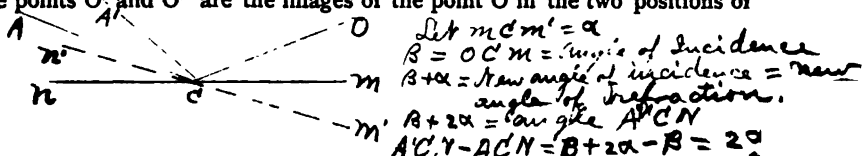 e points O' and O'' are the images of the point O in the two positions of
A A' O
n' n C m
m'
Let mCm' = α
β = OCm = angle of Incidence
β+α = New angle of incidence = new
angle of refraction.
β+2α = angle A'CN
A'CN - ACN = β+2α-β = 2α